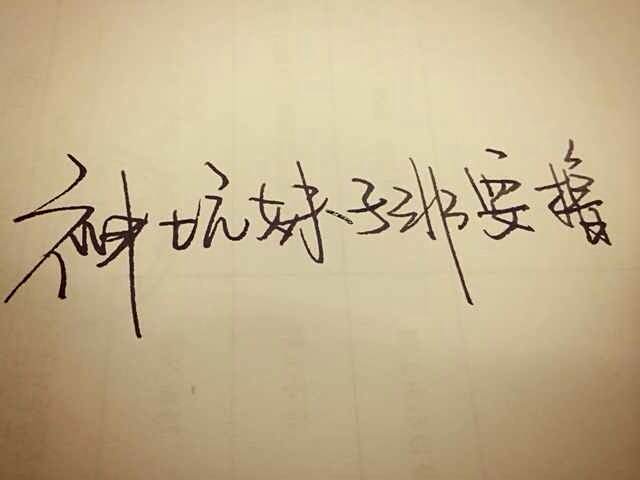 神坑妹子非要撸